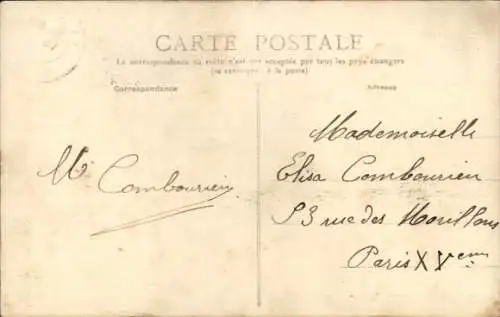 CARTE POSTALE
La correspondance au recto n'est pas acceptée par tous les pays étrangers
(se renseigner à la poste)
Correspondance
Adresse
M. Combourieu
Mademoiselle
Elisa Combourieu
53 rue des Morillons
Paris XVeme